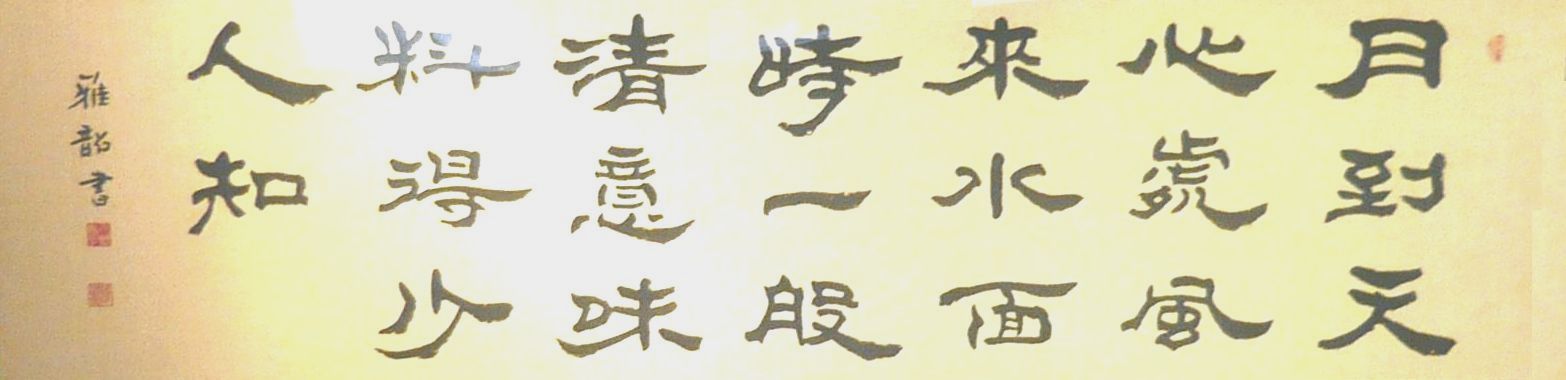 月到天
心處風
來水面
時一般
清意味
料得少
人知
雅韶書